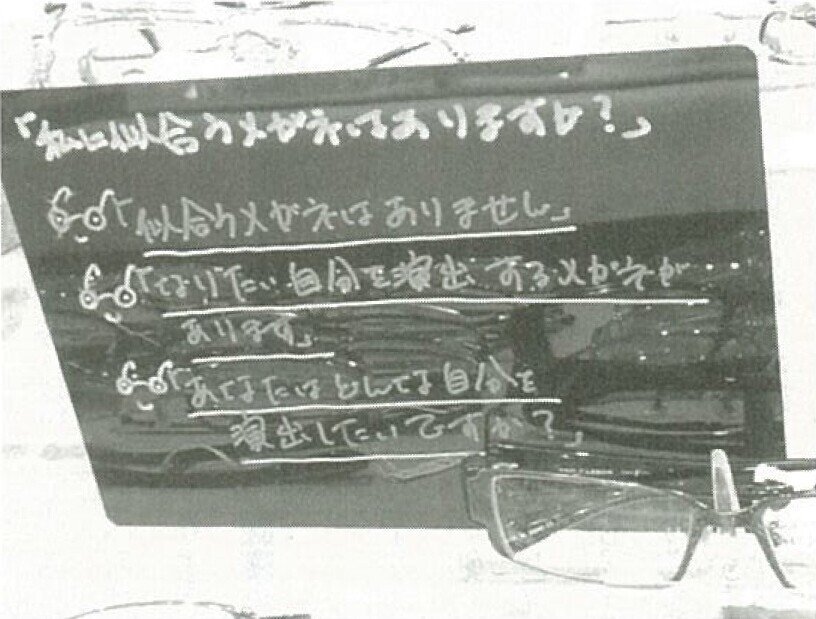 「私に似合うメガネはありますか？」
「似合うメガネはありません」
「なりたい自分を演出するメガネが
あります」
「あなたはどんな自分を
演出したいですか？」